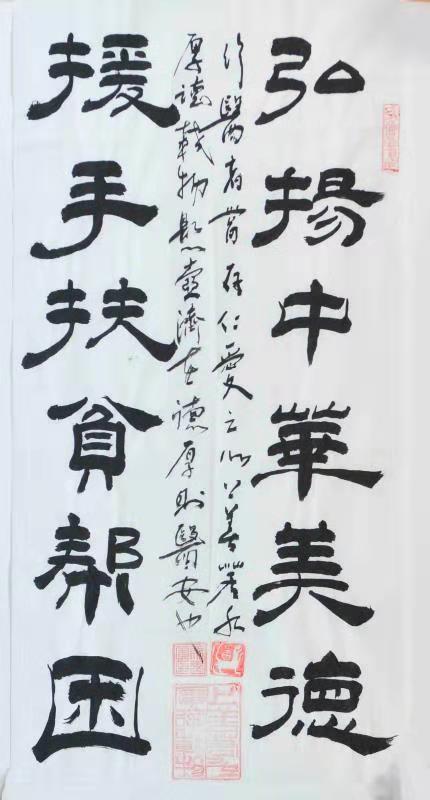 弘揚中華美德
行醫者當存仁愛之心上善若水
厚德載物懸壺濟世德厚則醫安也
援手扶貧帮困